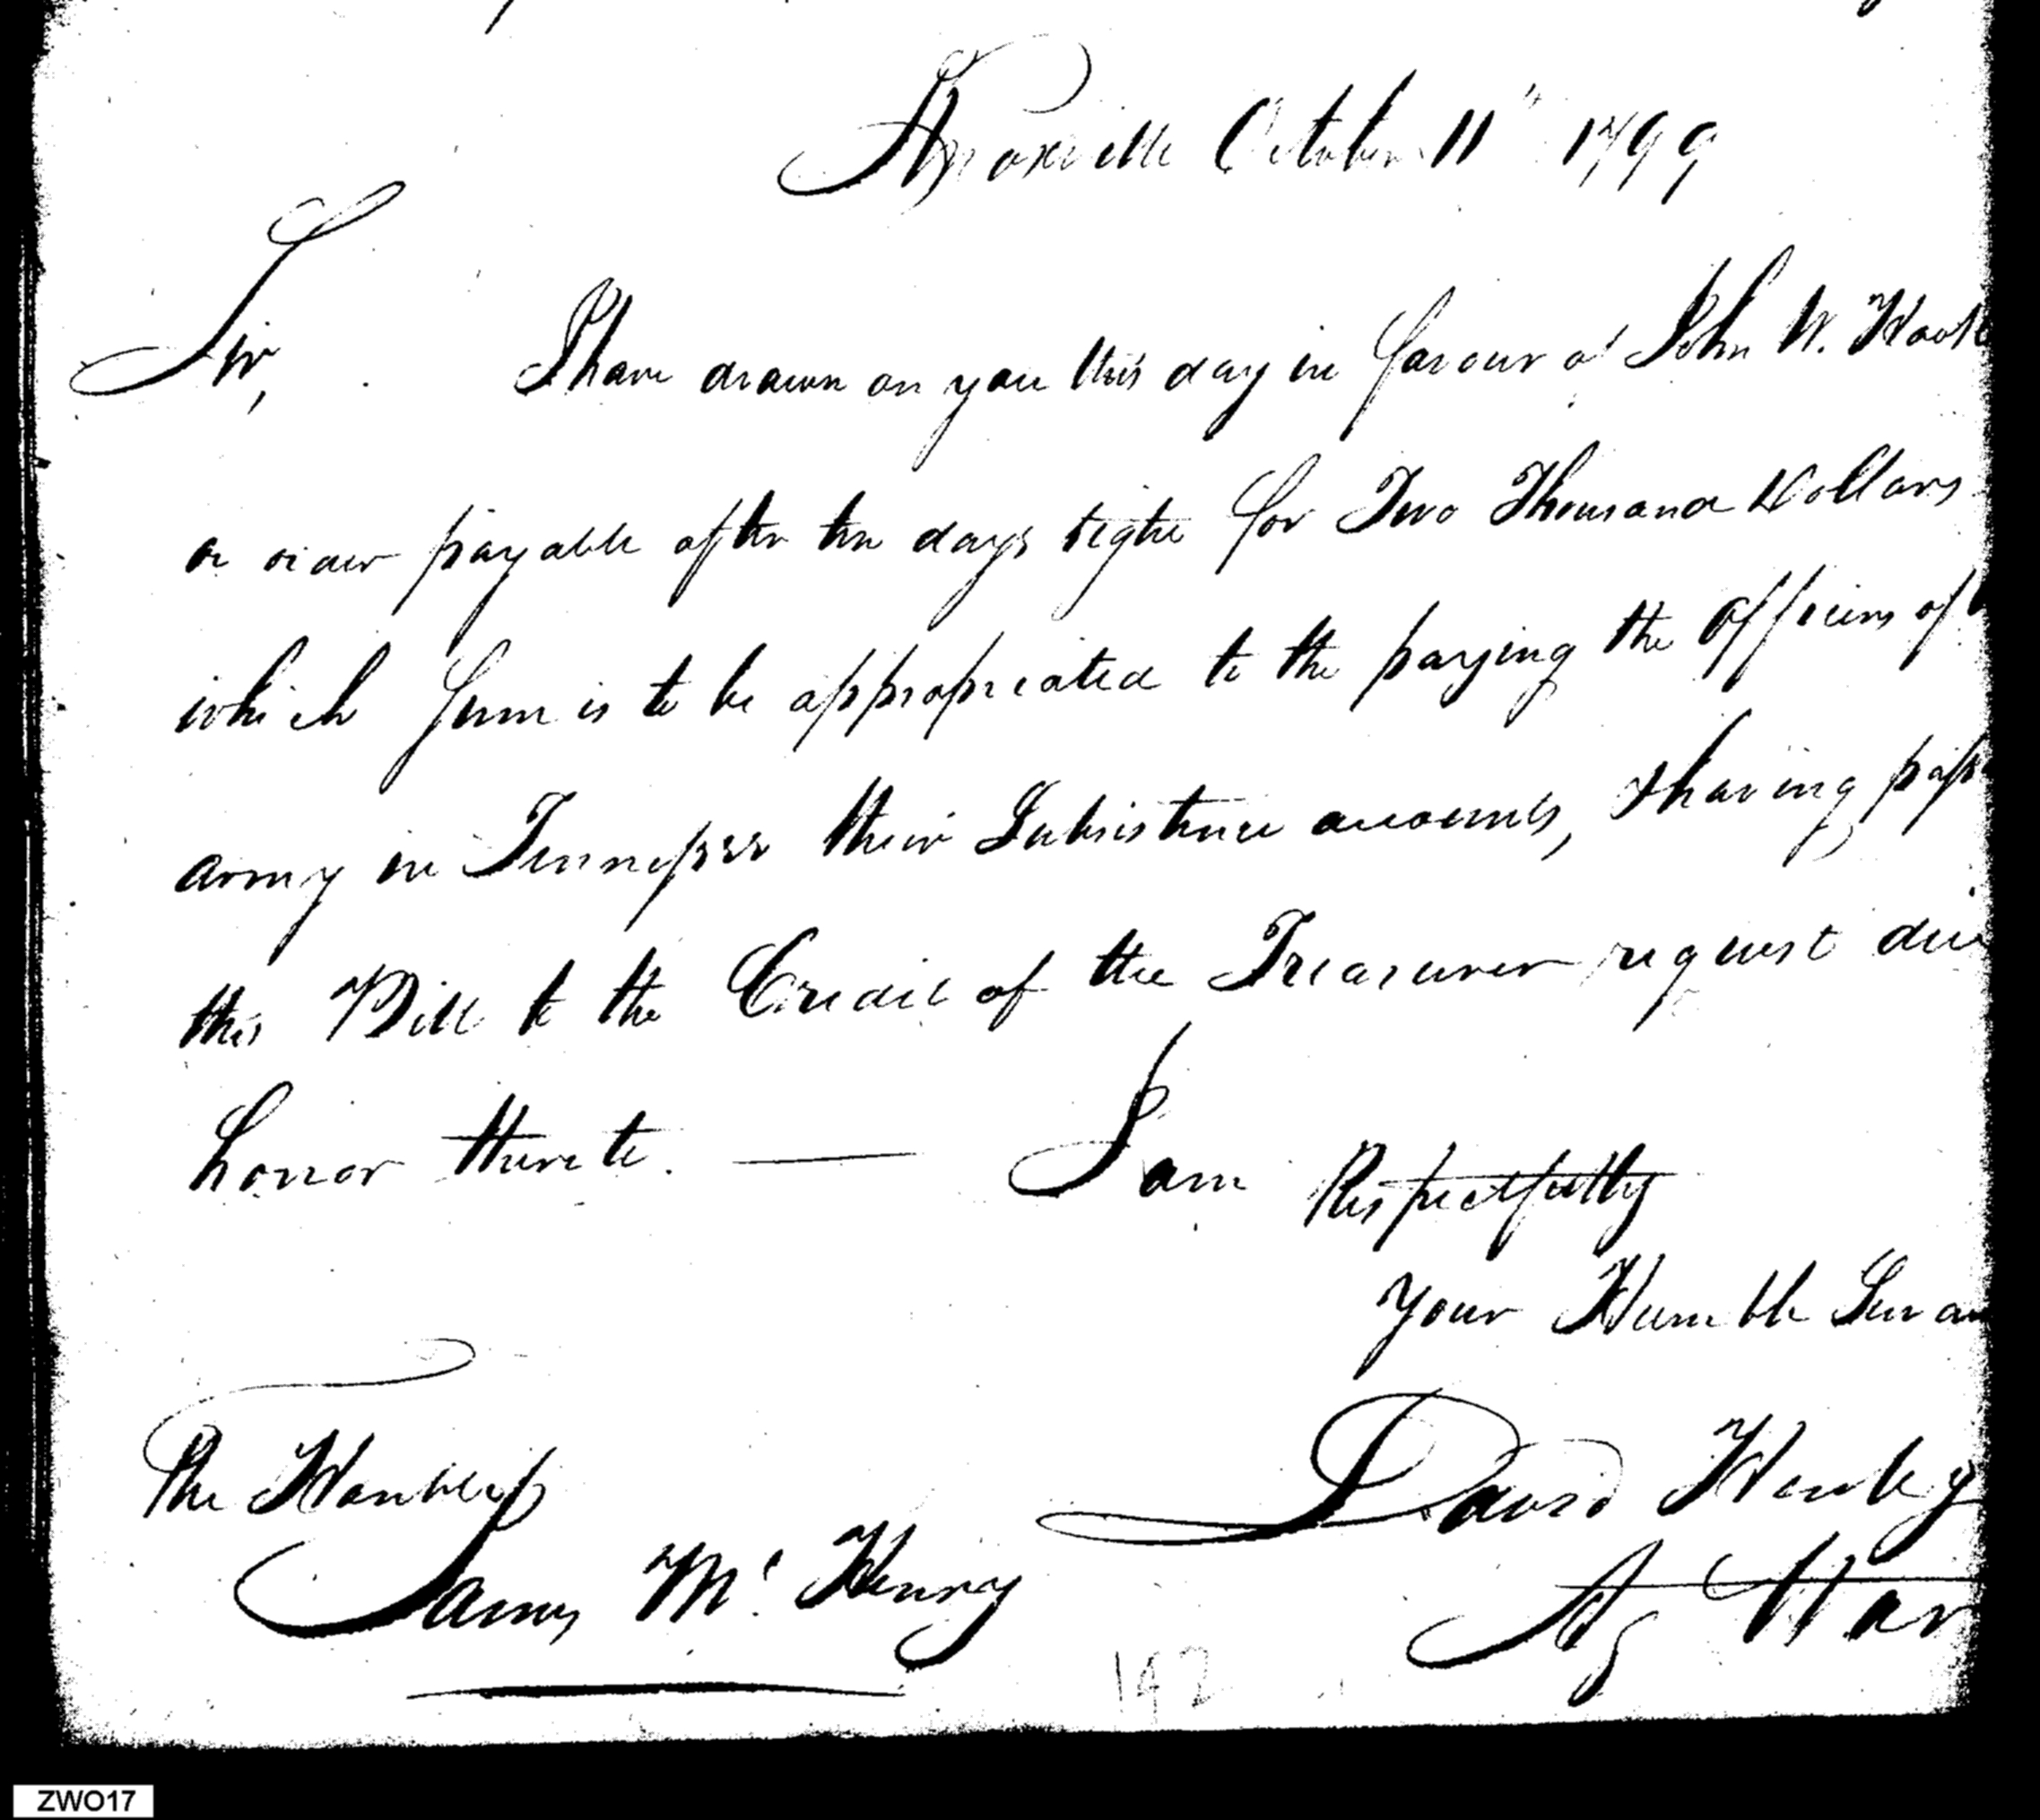 Knoxville October 11th 1799
Sir,
I have drawn on you this day in favour of John W. Hook
or order payable after ten days sight for Two Thousand Dollars
which Sum is to be appropriated to the paying the Officers of
army in Tennessee their Subsistence accounts, & having pass
this Bill to the Credit of the Treasurer request due
honor thereto. — I am Respectfully
Your Humble Servan
The Honble
James McHenry
David Henley
Ag War
142
ZWO17